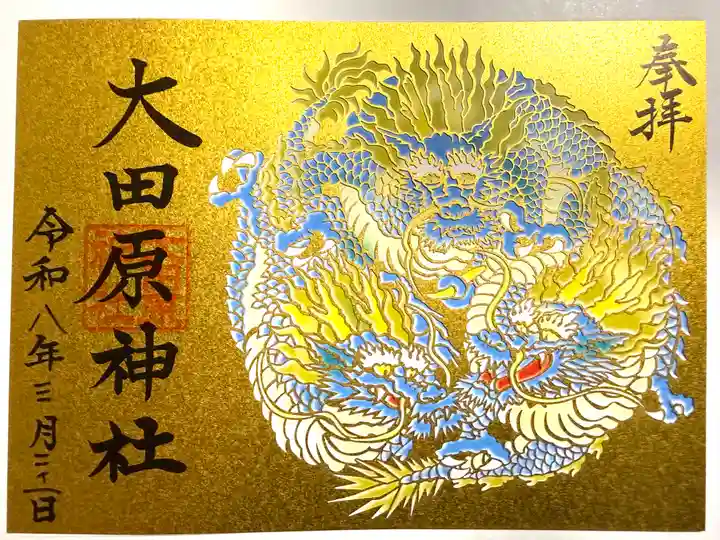 奉拝
大田原神社
令和八年三月二十一日